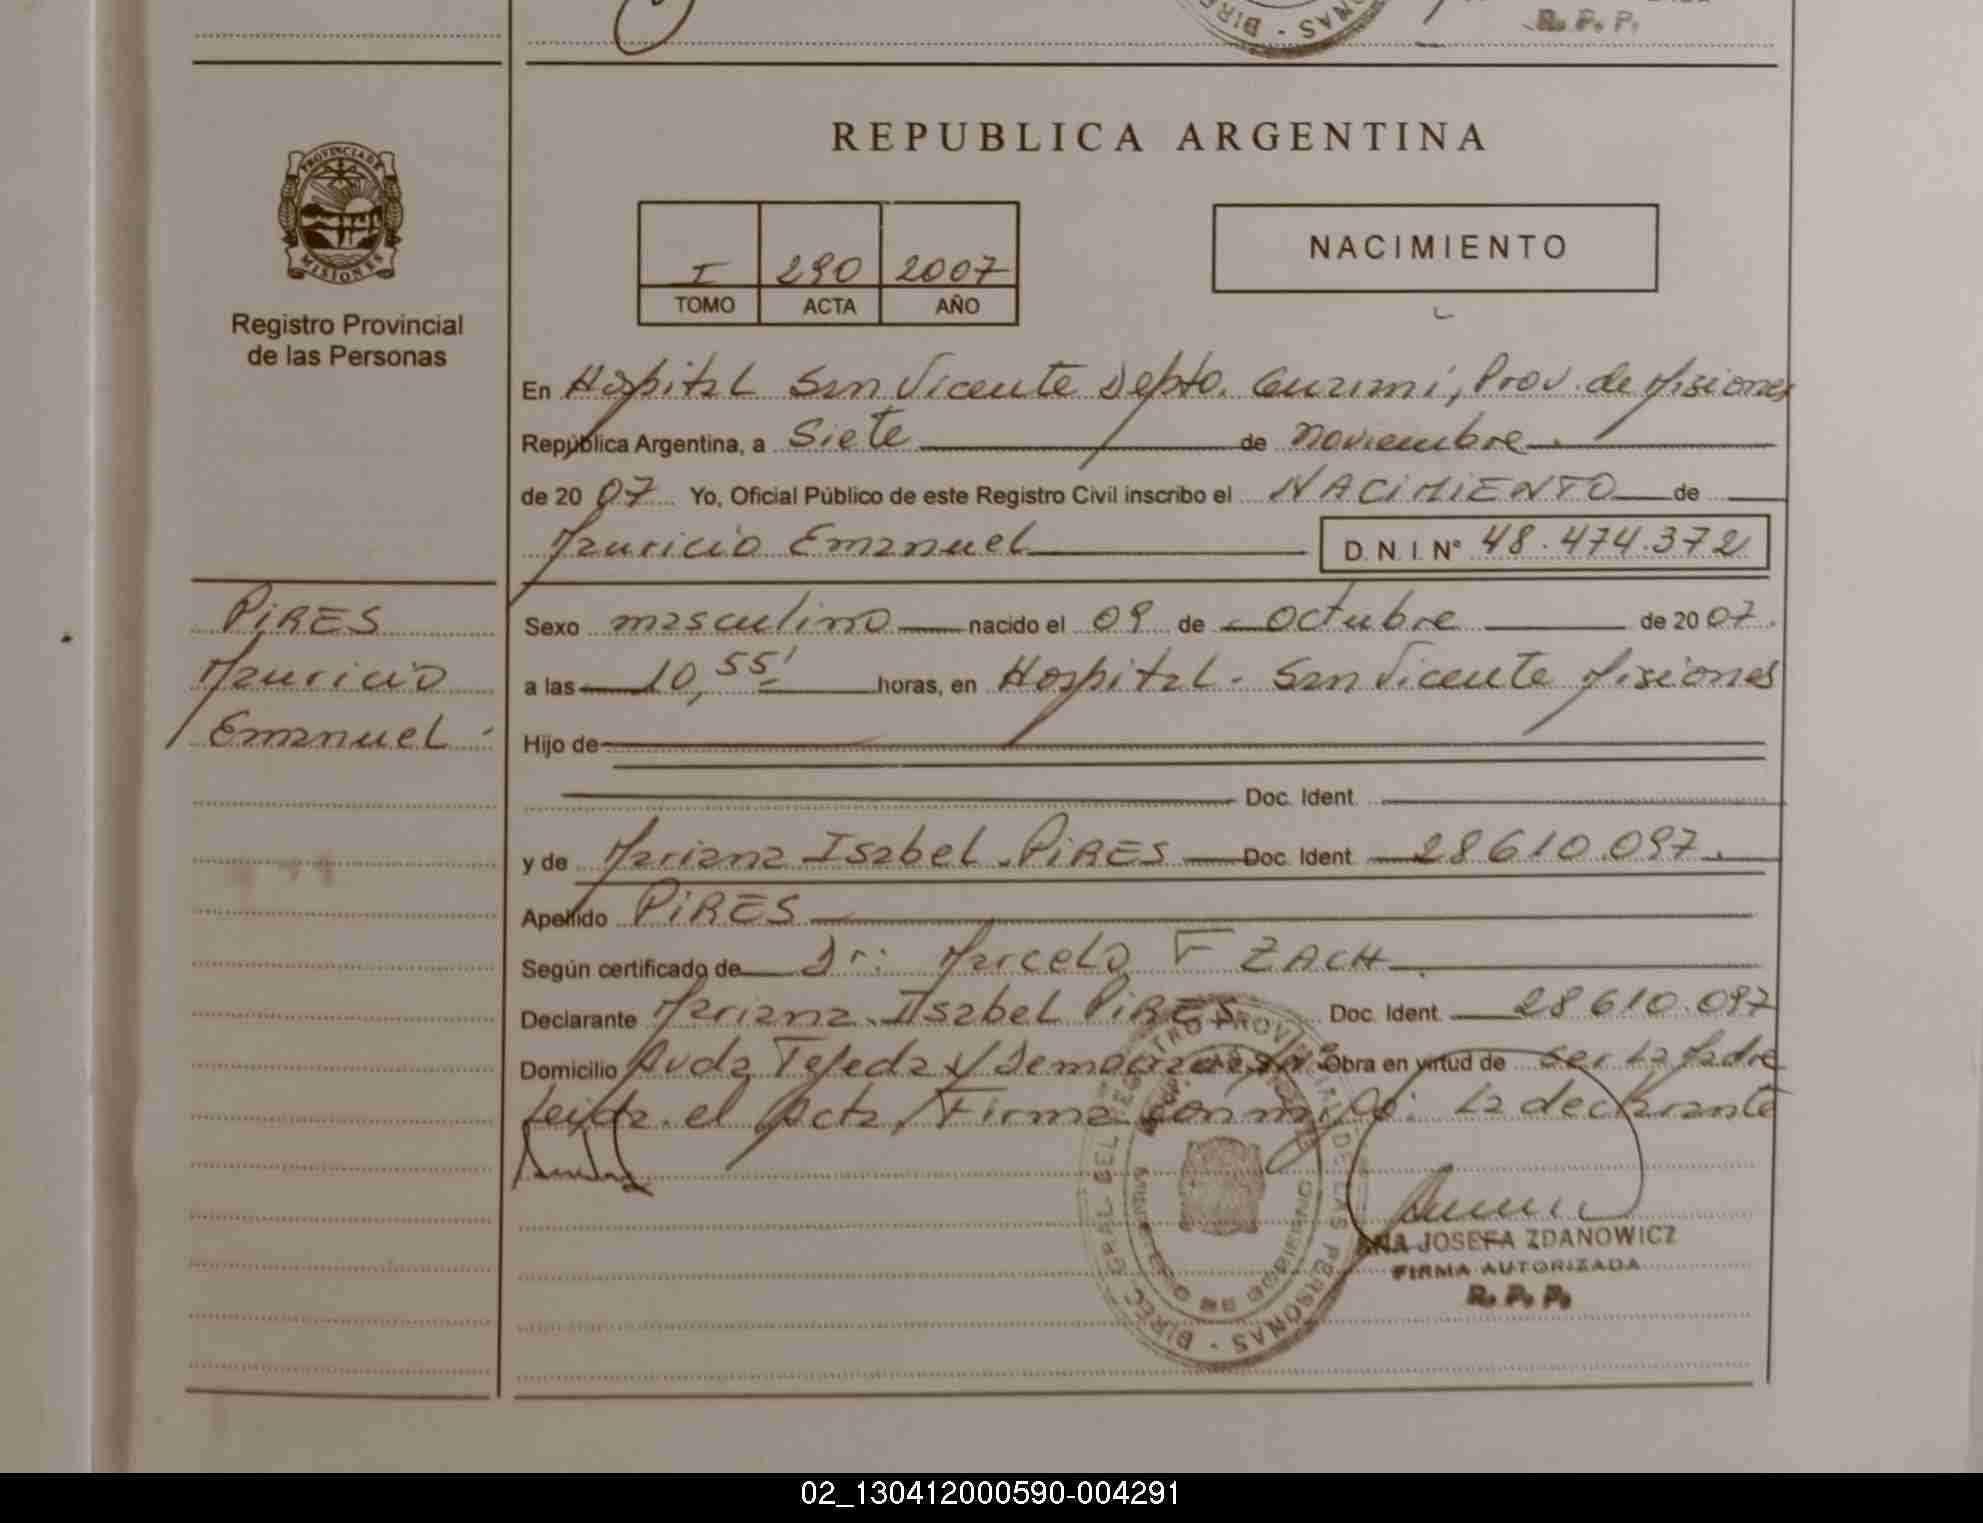 R. P. P.
REPUBLICA ARGENTINA
PROVINCIA DE
MISIONES
Registro Provincial
de las Personas
I 290 2007
TOMO ACTA AÑO
NACIMIENTO
En Hospital San Vicente Depto. Guarani, Prov. de Misiones
República Argentina, a Siete de noviembre.
de 20 07 Yo, Oficial Público de este Registro Civil inscribo el NACIMIENTO de
Mauricio Emanuel D. N. I. N° 48.474.372
PIRES
Mauricio
Emanuel
Sexo masculino nacido el 09 de Octubre de 20 07.
a las 10,55' horas, en Hospital - San Vicente Misiones
Hijo de
Doc. Ident.
y de Mariana Isabel PIRES Doc. Ident. 28610.097.
Apellido PIRES
Según certificado de Dr: Marcelo F ZACH
Declarante Mariana Isabel PIRES Doc. Ident. 28610.097
Domicilio Avda Tejeda y Democracia Obra en virtud de ser la Madre
Leida el Acta, Firma conmigo: la declarante
DIREC. GRAL. DEL REGISTRO PROVINCIAL DE LAS PERSONAS
ANA JOSEFA ZDANOWICZ
FIRMA AUTORIZADA
R. P. P.
02_130412000590-004291